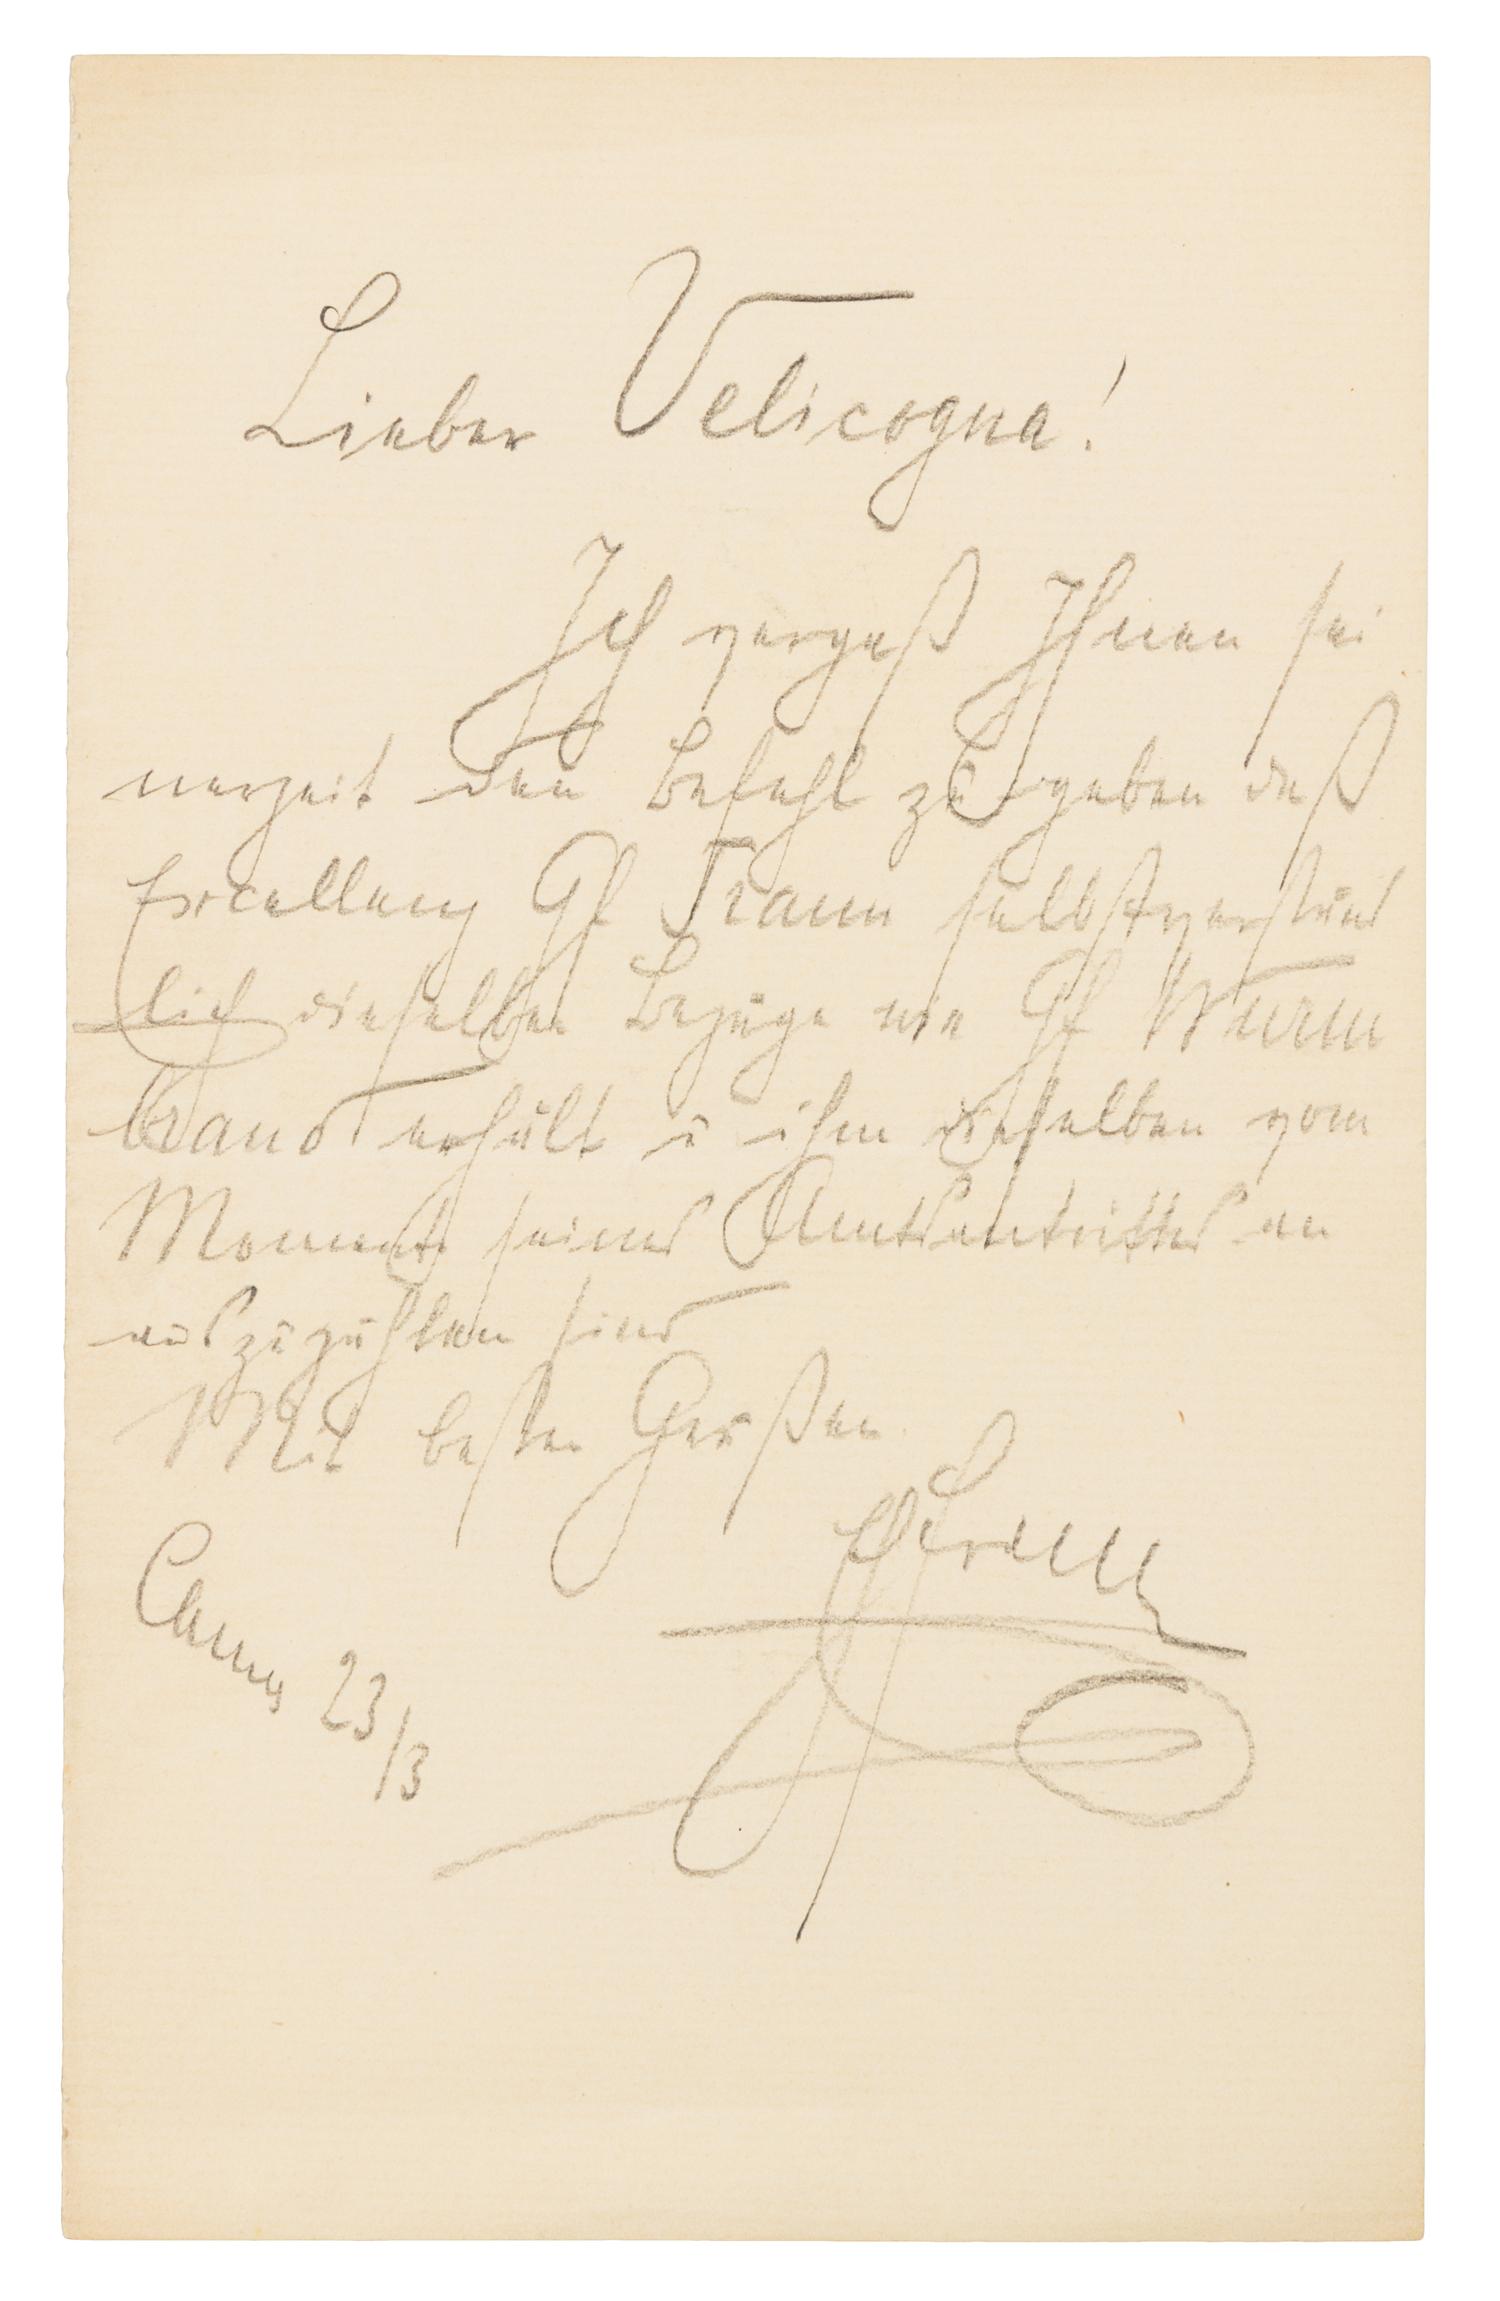 Lieber Velicogna!
Ich vergaß Ihnen sei
nerzeit den Befehl zu geben daß
Excellenz Gf Traun selbstverständ
lich dieselben Bezüge wie Gf Wurm
brand erhält u ihm dieselben vom
Momente seines Amtsantrittes an
auszuzahlen sind
Mit besten Grüßen
Cannes 23/3